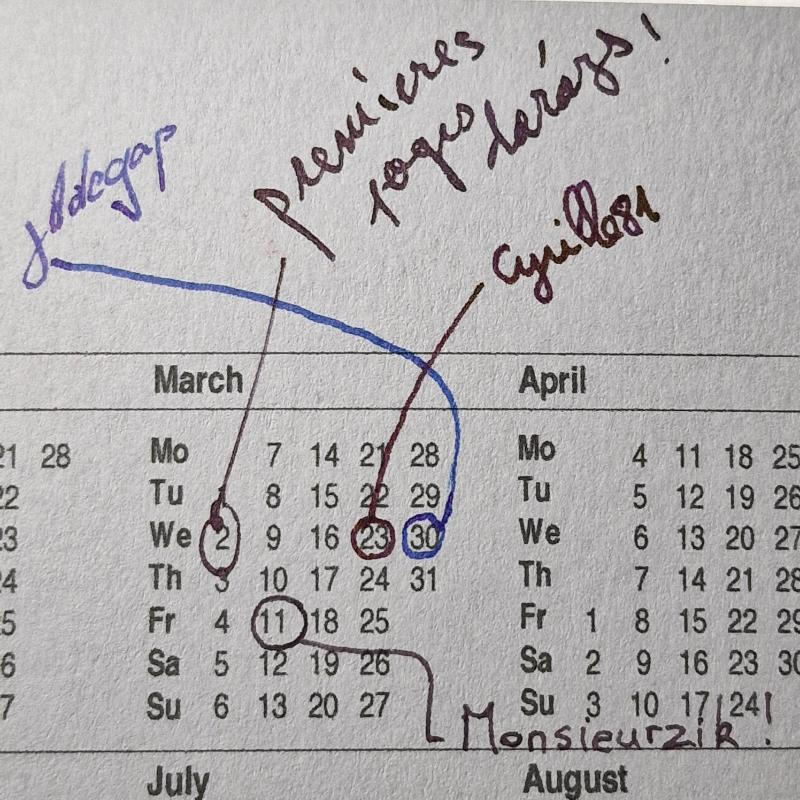 premières
Cyrille81
March April
21 28 Mo 7 14 21 28 Mo 4 11 18 25
22 Tu 8 15 22 29 Tu 5 12 19 26
23 We 2 9 16 23 30 We 6 13 20 27
24 Th 3 10 17 24 31 Th 7 14 21 28
25 Fr 4 11 18 25 Fr 1 8 15 22 29
6 Sa 5 12 19 26 Sa 2 9 16 23 30
7 Su 6 13 20 27 Su 3 10 17 24
Monsieurzik !
July August